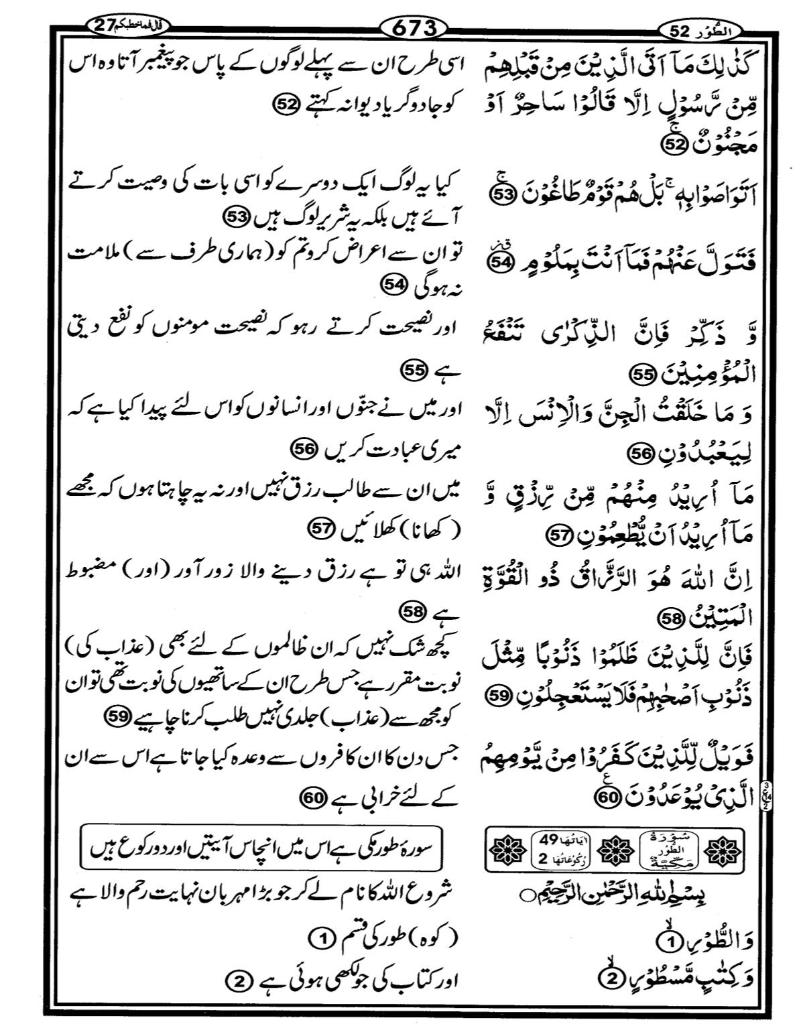 الطُّوْر 52
673
قال فما خطبكم 27
كَذٰلِكَ مَاۤ اَتَى الَّذِيْنَ مِنْ قَبْلِهِمْ
مِّنْ رَّسُوْلٍ اِلَّا قَالُوْا سَاحِرٌ اَوْ
مَجْنُوْنٌ ۚ 52
اسی طرح ان سے پہلے لوگوں کے پاس جو پیغمبر آتا وہ اس
کو جادوگر یا دیوانہ کہتے 52
اَتَوَاصَوْا بِهٖ ۚ بَلْ هُمْ قَوْمٌ طَاغُوْنَ ۚ 53
کیا یہ لوگ ایک دوسرے کو اسی بات کی وصیت کرتے
آئے ہیں بلکہ یہ شریر لوگ ہیں 53
فَتَوَلَّ عَنْهُمْ فَمَاۤ اَنْتَ بِمَلُوْمٍ 54
تو ان سے اعراض کرو تم کو (ہماری طرف سے) ملامت
نہ ہوگی 54
وَّ ذَكِّرْ فَاِنَّ الذِّكْرٰى تَنْفَعُ
الْمُؤْمِنِيْنَ 55
اور نصیحت کرتے رہو کہ نصیحت مومنوں کو نفع دیتی
ہے 55
وَ مَا خَلَقْتُ الْجِنَّ وَالْاِنْسَ اِلَّا
لِيَعْبُدُوْنِ 56
اور میں نے جنّوں اور انسانوں کو اس لئے پیدا کیا ہے کہ
میری عبادت کریں 56
مَاۤ اُرِيْدُ مِنْهُمْ مِّنْ رِّزْقٍ وَّ
مَاۤ اُرِيْدُ اَنْ يُّطْعِمُوْنِ 57
میں ان سے طالب رزق نہیں اور نہ یہ چاہتا ہوں کہ مجھے
(کھانا) کھلائیں 57
اِنَّ اللّٰهَ هُوَ الرَّزَّاقُ ذُو الْقُوَّةِ
الْمَتِيْنُ 58
اللہ ہی تو ہے رزق دینے والا زور آور (اور) مضبوط
ہے 58
فَاِنَّ لِلَّذِيْنَ ظَلَمُوْا ذَنُوْبًا مِّثْلَ
ذَنُوْبِ اَصْحٰبِهِمْ فَلَا يَسْتَعْجِلُوْنِ 59
کچھ شک نہیں کہ ان ظالموں کے لئے بھی (عذاب کی)
نوبت مقرر ہے جس طرح ان کے ساتھیوں کی نوبت تھی تو ان
کو مجھ سے (عذاب) جلدی نہیں طلب کرنا چاہیے 59
فَوَيْلٌ لِّلَّذِيْنَ كَفَرُوْا مِنْ يَّوْمِهِمُ
الَّذِيْ يُوْعَدُوْنَ ع 60
جس دن کا ان کافروں سے وعدہ کیا جاتا ہے اس سے ان
کے لئے خرابی ہے 60
سُوْرَةُ
الطُّوْر
مَكِّيَّةٌ
اٰيَاتُهَا 49
رُكُوْعَاتُهَا 2
سورۂ طور مکی ہے اس میں انچاس آیتیں اور دو رکوع ہیں
بِسْمِ اللّٰهِ الرَّحْمٰنِ الرَّحِيْمِ ○
شروع اللہ کا نام لے کر جو بڑا مہربان نہایت رحم والا ہے
وَالطُّوْرِ ۙ 1
(کوہ) طور کی قسم 1
وَكِتٰبٍ مَّسْطُوْرٍ ۙ 2
اور کتاب کی جو لکھی ہوئی ہے 2